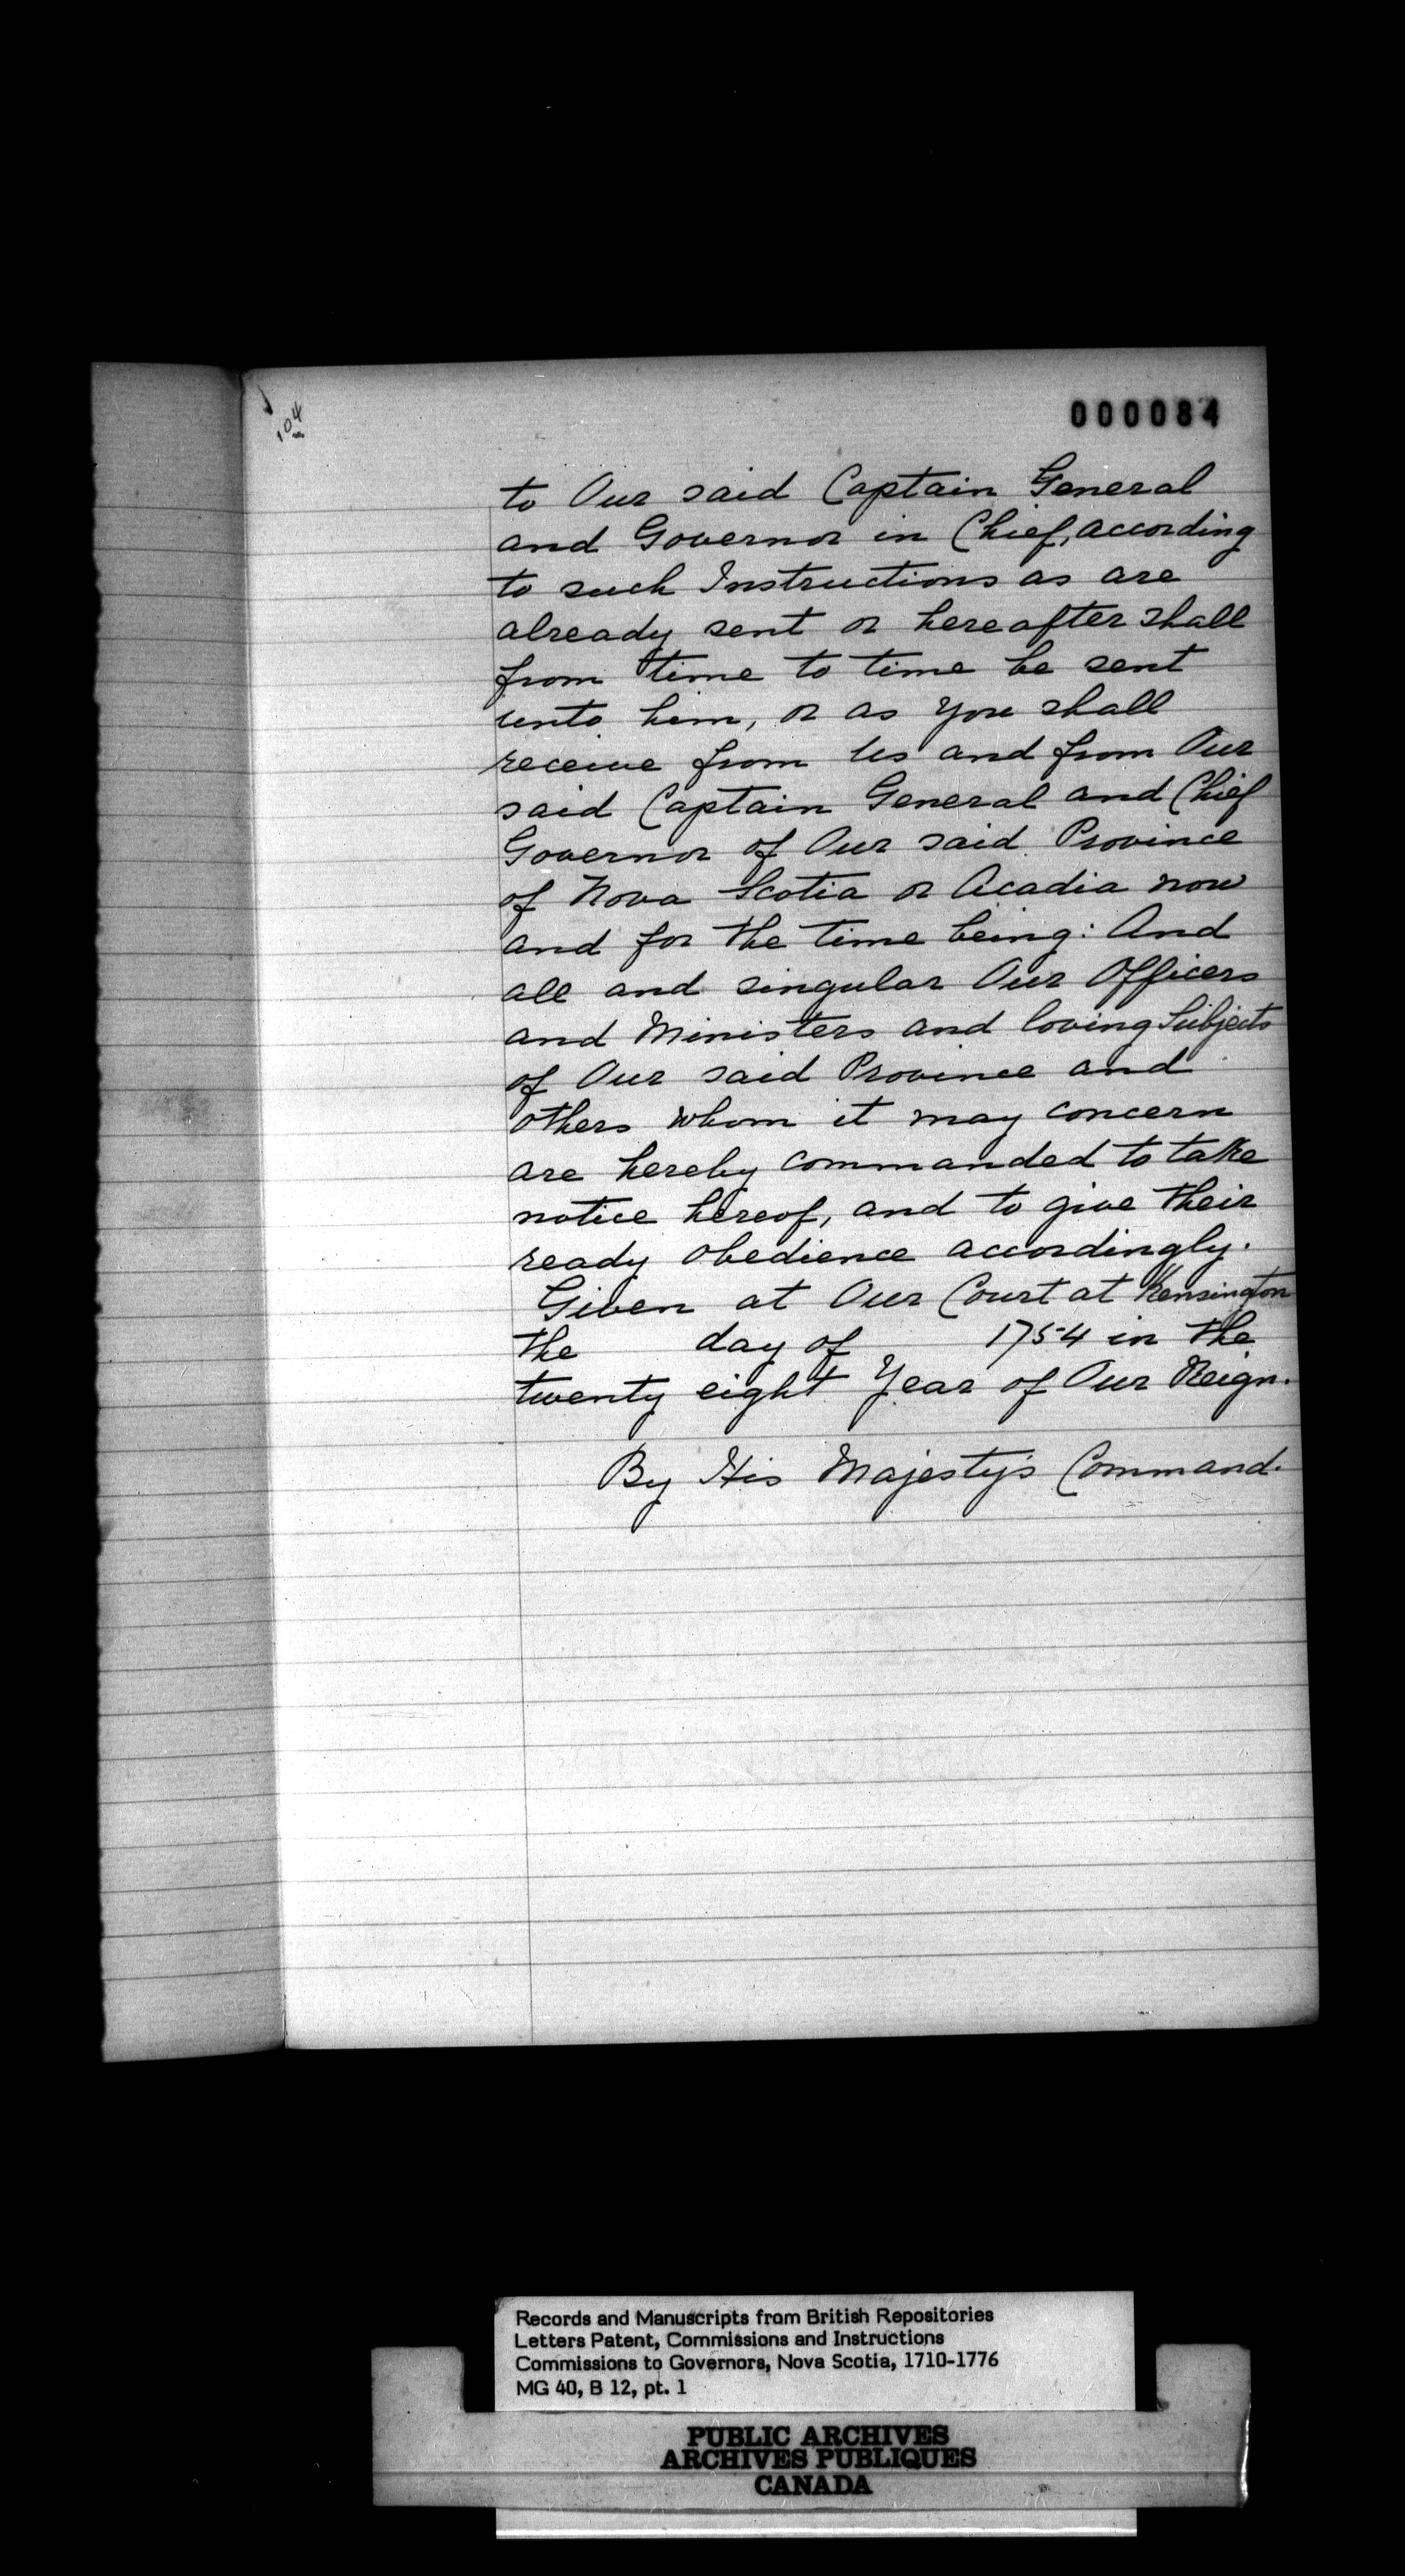 104
000084
to Our said Captain General
and Governor in Chief, according
to such Instructions as are
already sent or hereafter shall
from time to time be sent
unto him, or as you shall
receive from Us and from Our
said Captain General and Chief
Governor of Our said Province
of Nova Scotia or Acadia now
and for the time being: And
all and singular Our Officers
and Ministers and loving Subjects
of Our said Province and
others whom it may concern
are hereby commanded to take
notice hereof, and to give their
ready obedience accordingly.
Given at Our Court at Kensington
the day of 1754 in the
twenty eight Year of Our Reign.
By His Majesty's Command.
Records and Manuscripts from British Repositories
Letters Patent, Commissions and Instructions
Commissions to Governors, Nova Scotia, 1710-1776
MG 40, B 12, pt. 1
PUBLIC ARCHIVES
ARCHIVES PUBLIQUES
CANADA